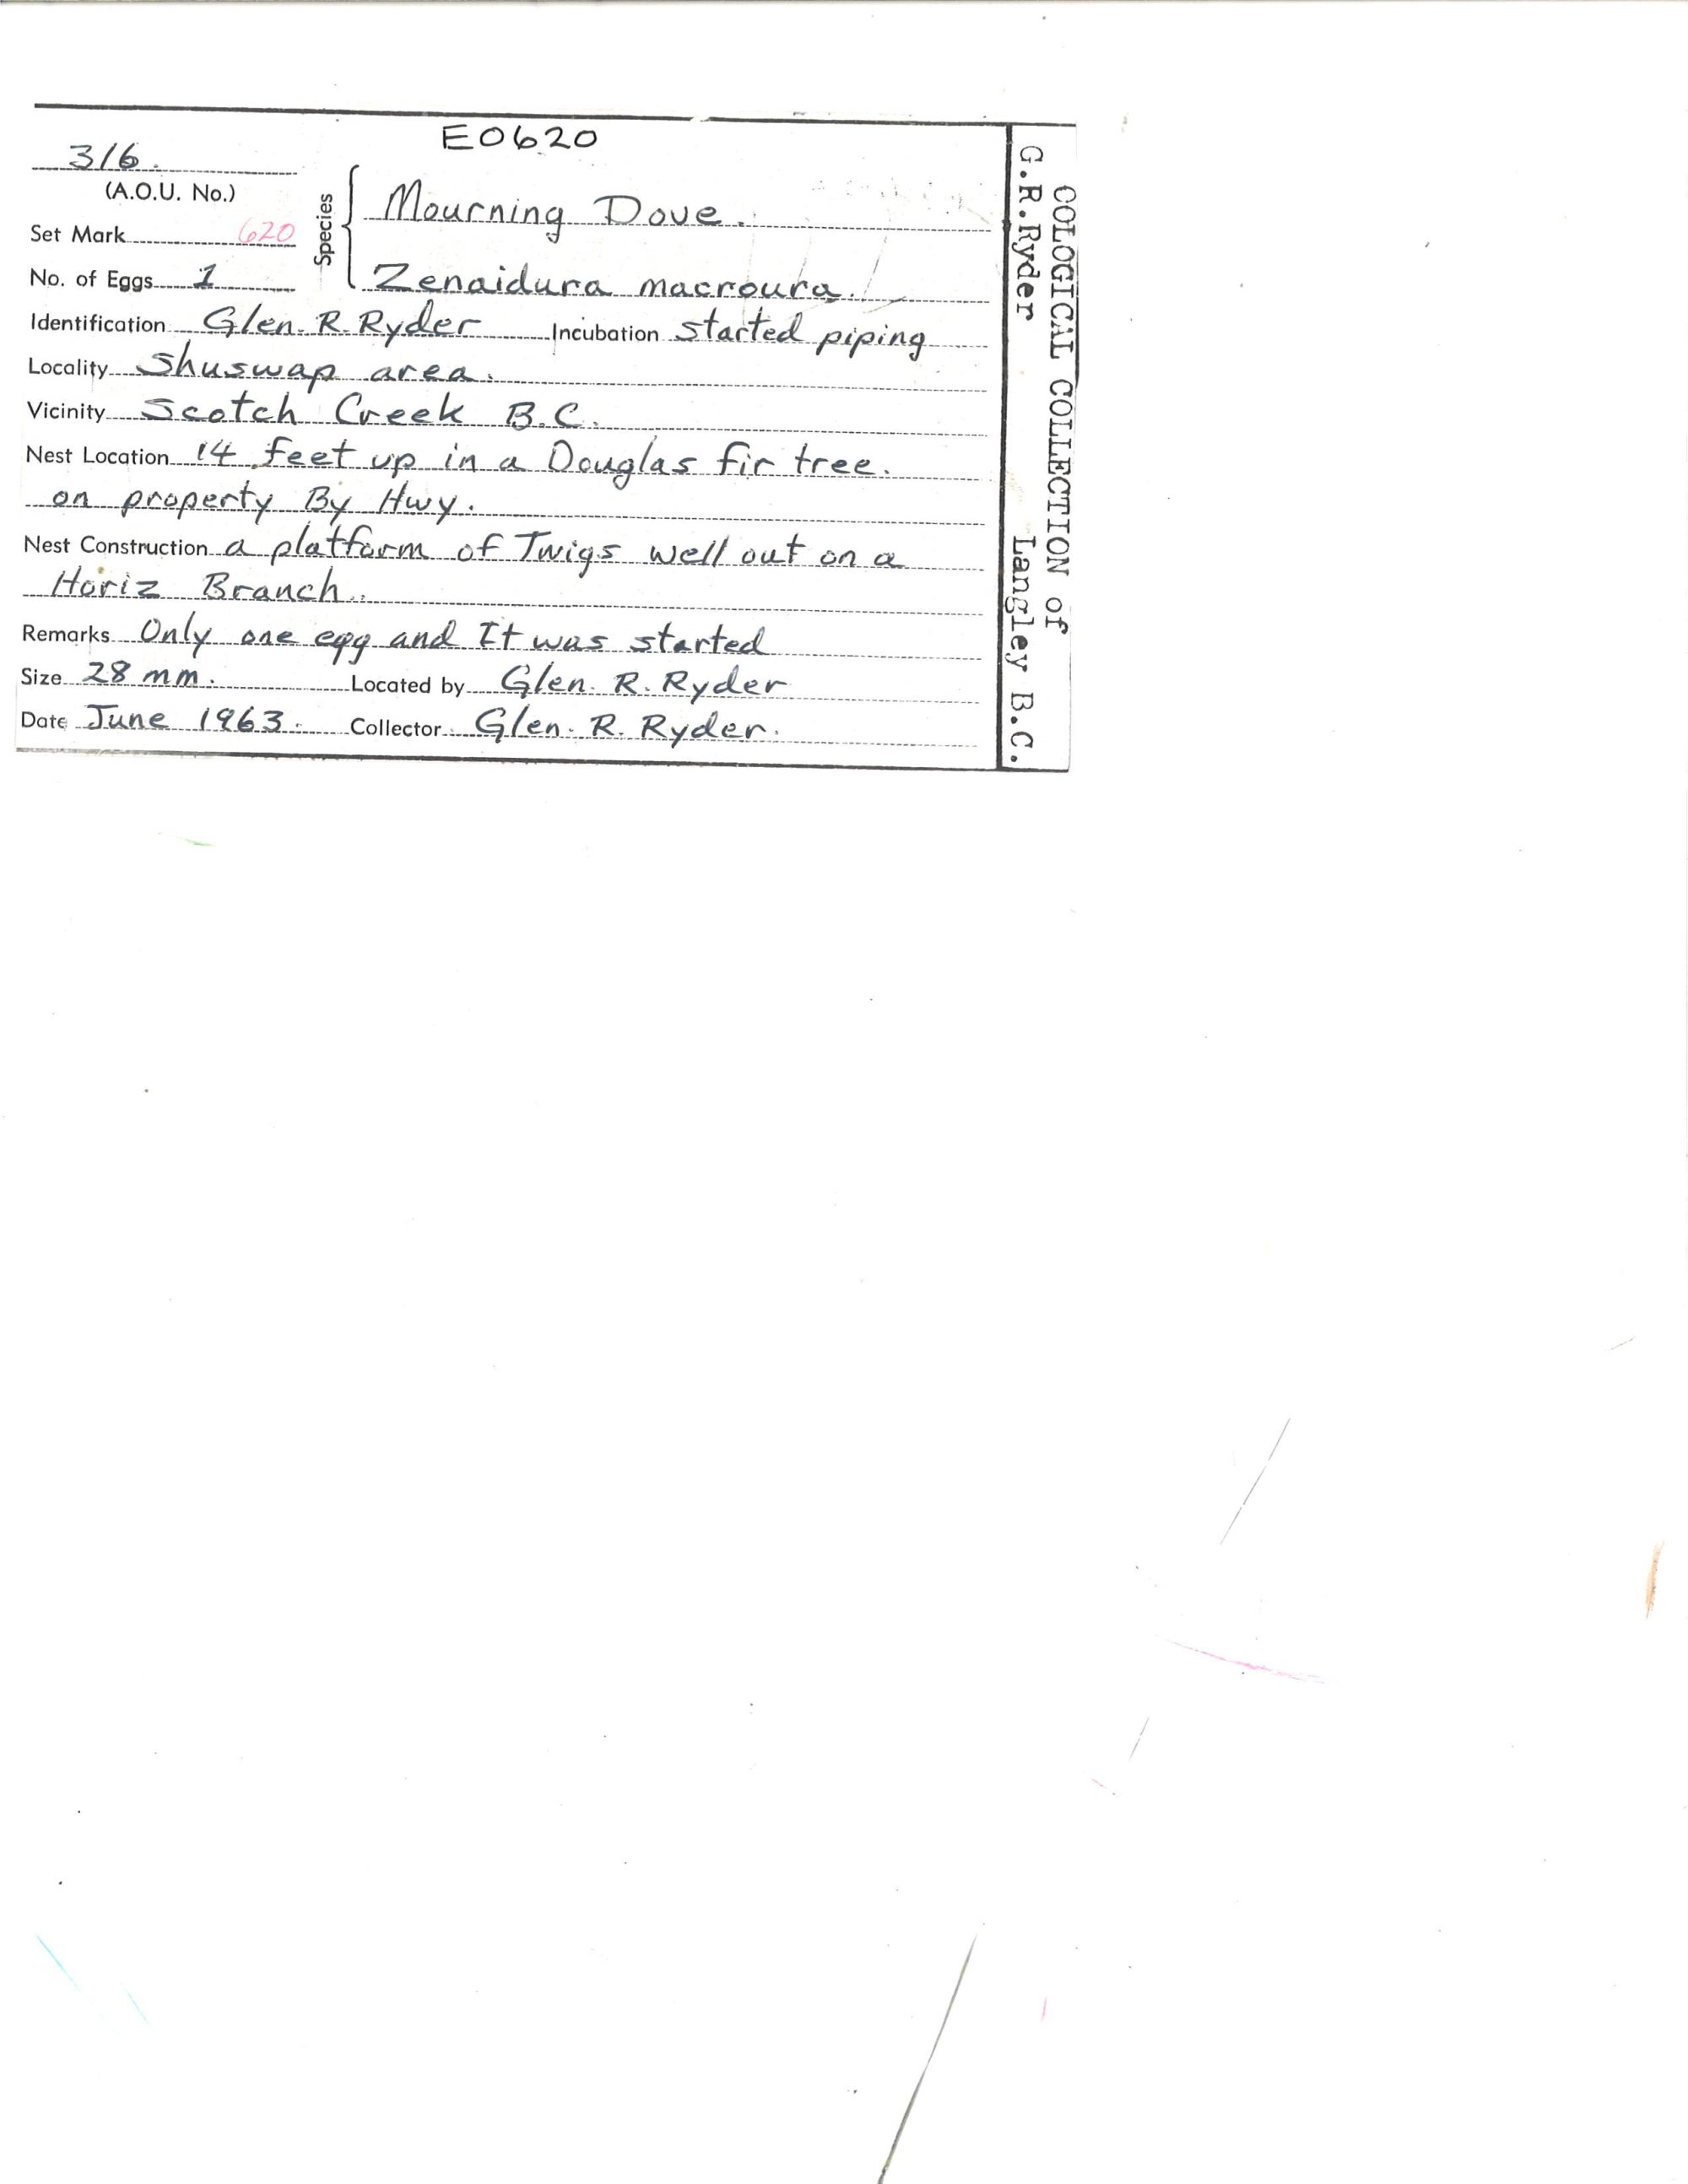 E0620
316.
(A.O.U. No.)
Set Mark 620
No. of Eggs 1
Species
Mourning Dove.
Zenaidura macroura.
Identification Glen. R. Ryder Incubation started piping
Locality Shuswap area.
Vicinity Scotch Creek B.C.
Nest Location 14 feet up in a Douglas fir tree.
on property By Hwy.
Nest Construction a platform of Twigs well out on a
Horiz Branch.
Remarks Only one egg and It was started
Size 28 mm. Located by Glen. R. Ryder
Date June 1963. Collector Glen. R. Ryder.
OOLOGICAL COLLECTION of
G.R.Ryder Langley B.C.